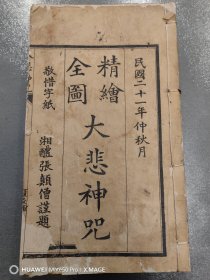 民國二十一年仲秋月
精繪
全圖
大悲神咒
敬惜字紙
湘醴張顛僧謹題
HUAWEI Mate50 Pro | X MAGE